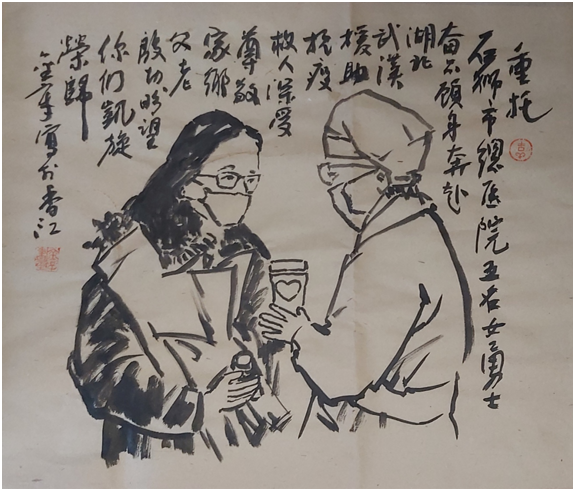 重托
石狮市總医院五名女勇士
奋不顾身奔赴
湖北
武漢
援助
抗疫
救人深受
尊敬
家鄉
父老
殷切盼望
你们凱旋
榮歸
寫於香江